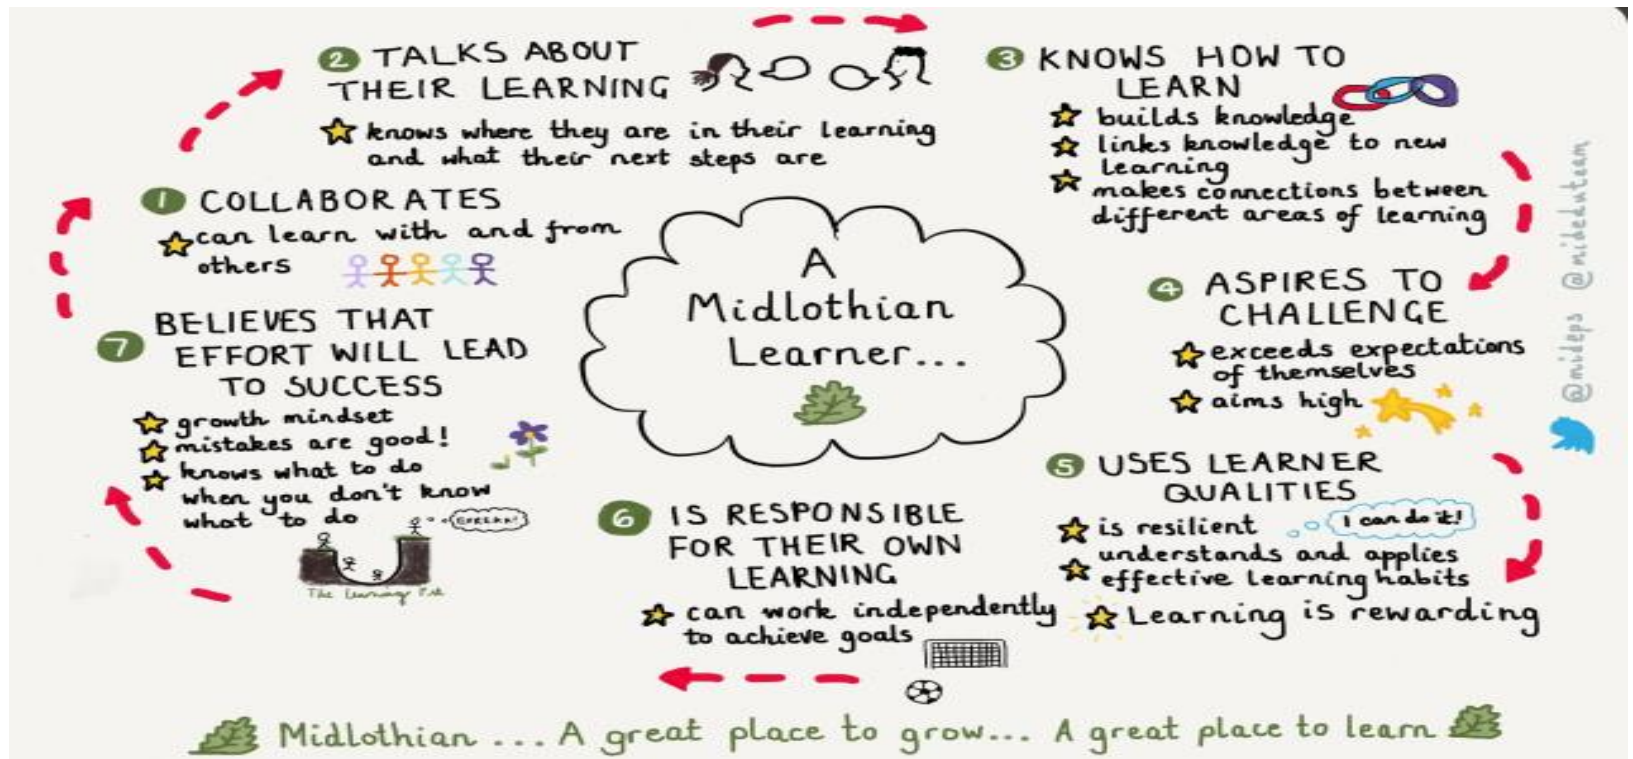 1 COLLABORATES
can learn with and from
others
2 TALKS ABOUT
THEIR LEARNING
knows where they are in their learning
and what their next steps are
3 KNOWS HOW TO
LEARN
builds knowledge
links knowledge to new
learning
makes connections between
different areas of learning
4 ASPIRES TO
CHALLENGE
exceeds expectations
of themselves
aims high
5 USES LEARNER
QUALITIES
is resilient
I can do it!
understands and applies
effective learning habits
Learning is rewarding
6 IS RESPONSIBLE
FOR THEIR OWN
LEARNING
can work independently
to achieve goals
7 BELIEVES THAT
EFFORT WILL LEAD
TO SUCCESS
growth mindset
mistakes are good!
knows what to do
when you don't know
what to do
EUREKA!
The Learning Pit
A
Midlothian
Learner...
@mideps @mideduteam
Midlothian ... A great place to grow... A great place to learn